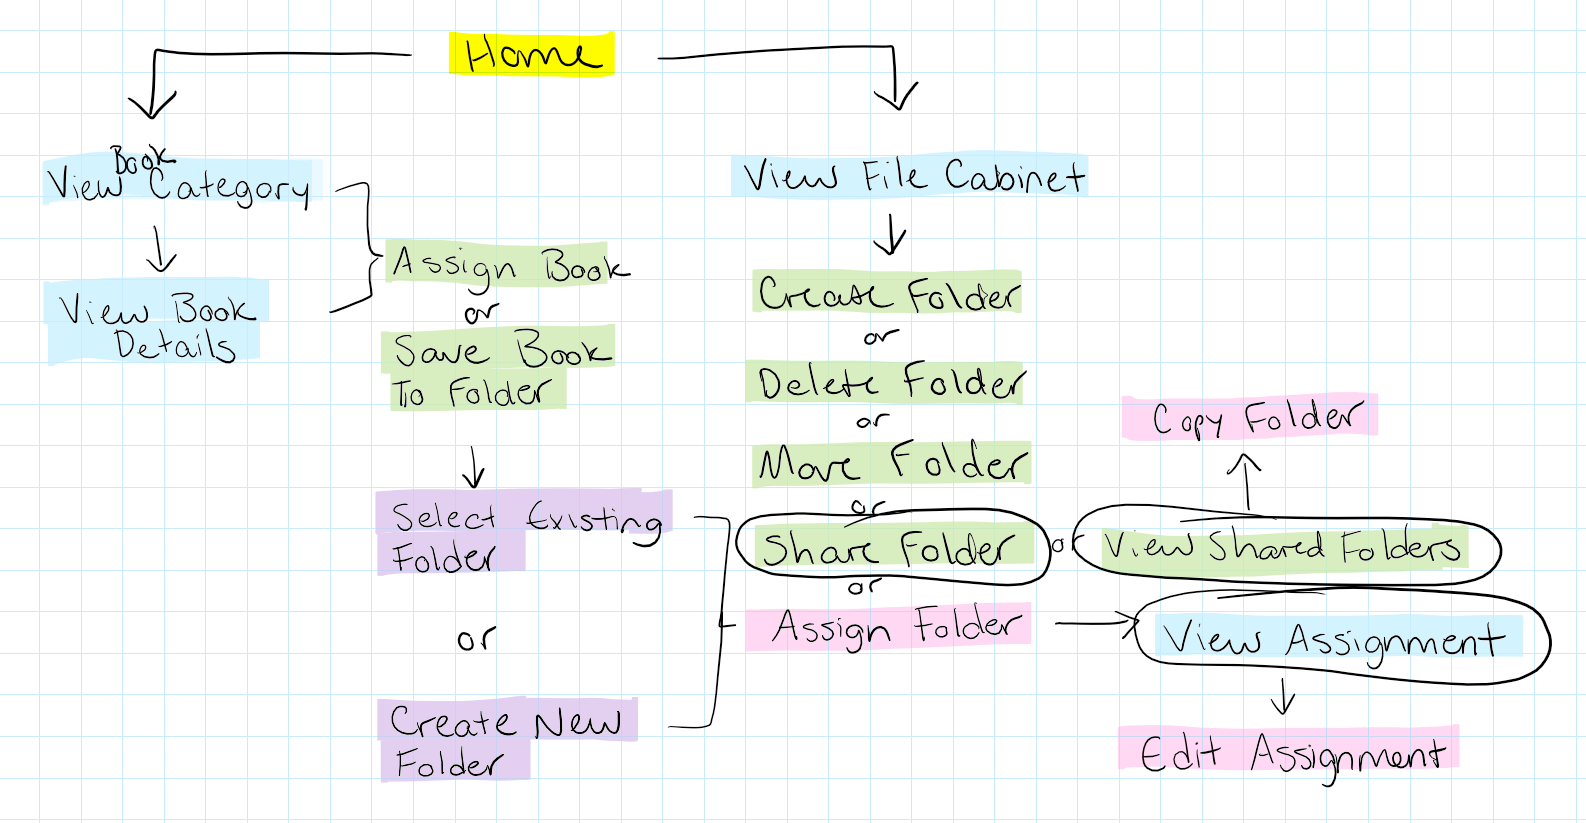 Home
Book
View Category
View Book
Details
Assign Book
or
Save Book
To Folder
Select Existing
Folder
or
Create New
Folder
View File Cabinet
Create Folder
or
Delete Folder
or
Move Folder
or
Share Folder
or
Assign Folder
or
View Shared Folders
Copy Folder
View Assignment
Edit Assignment